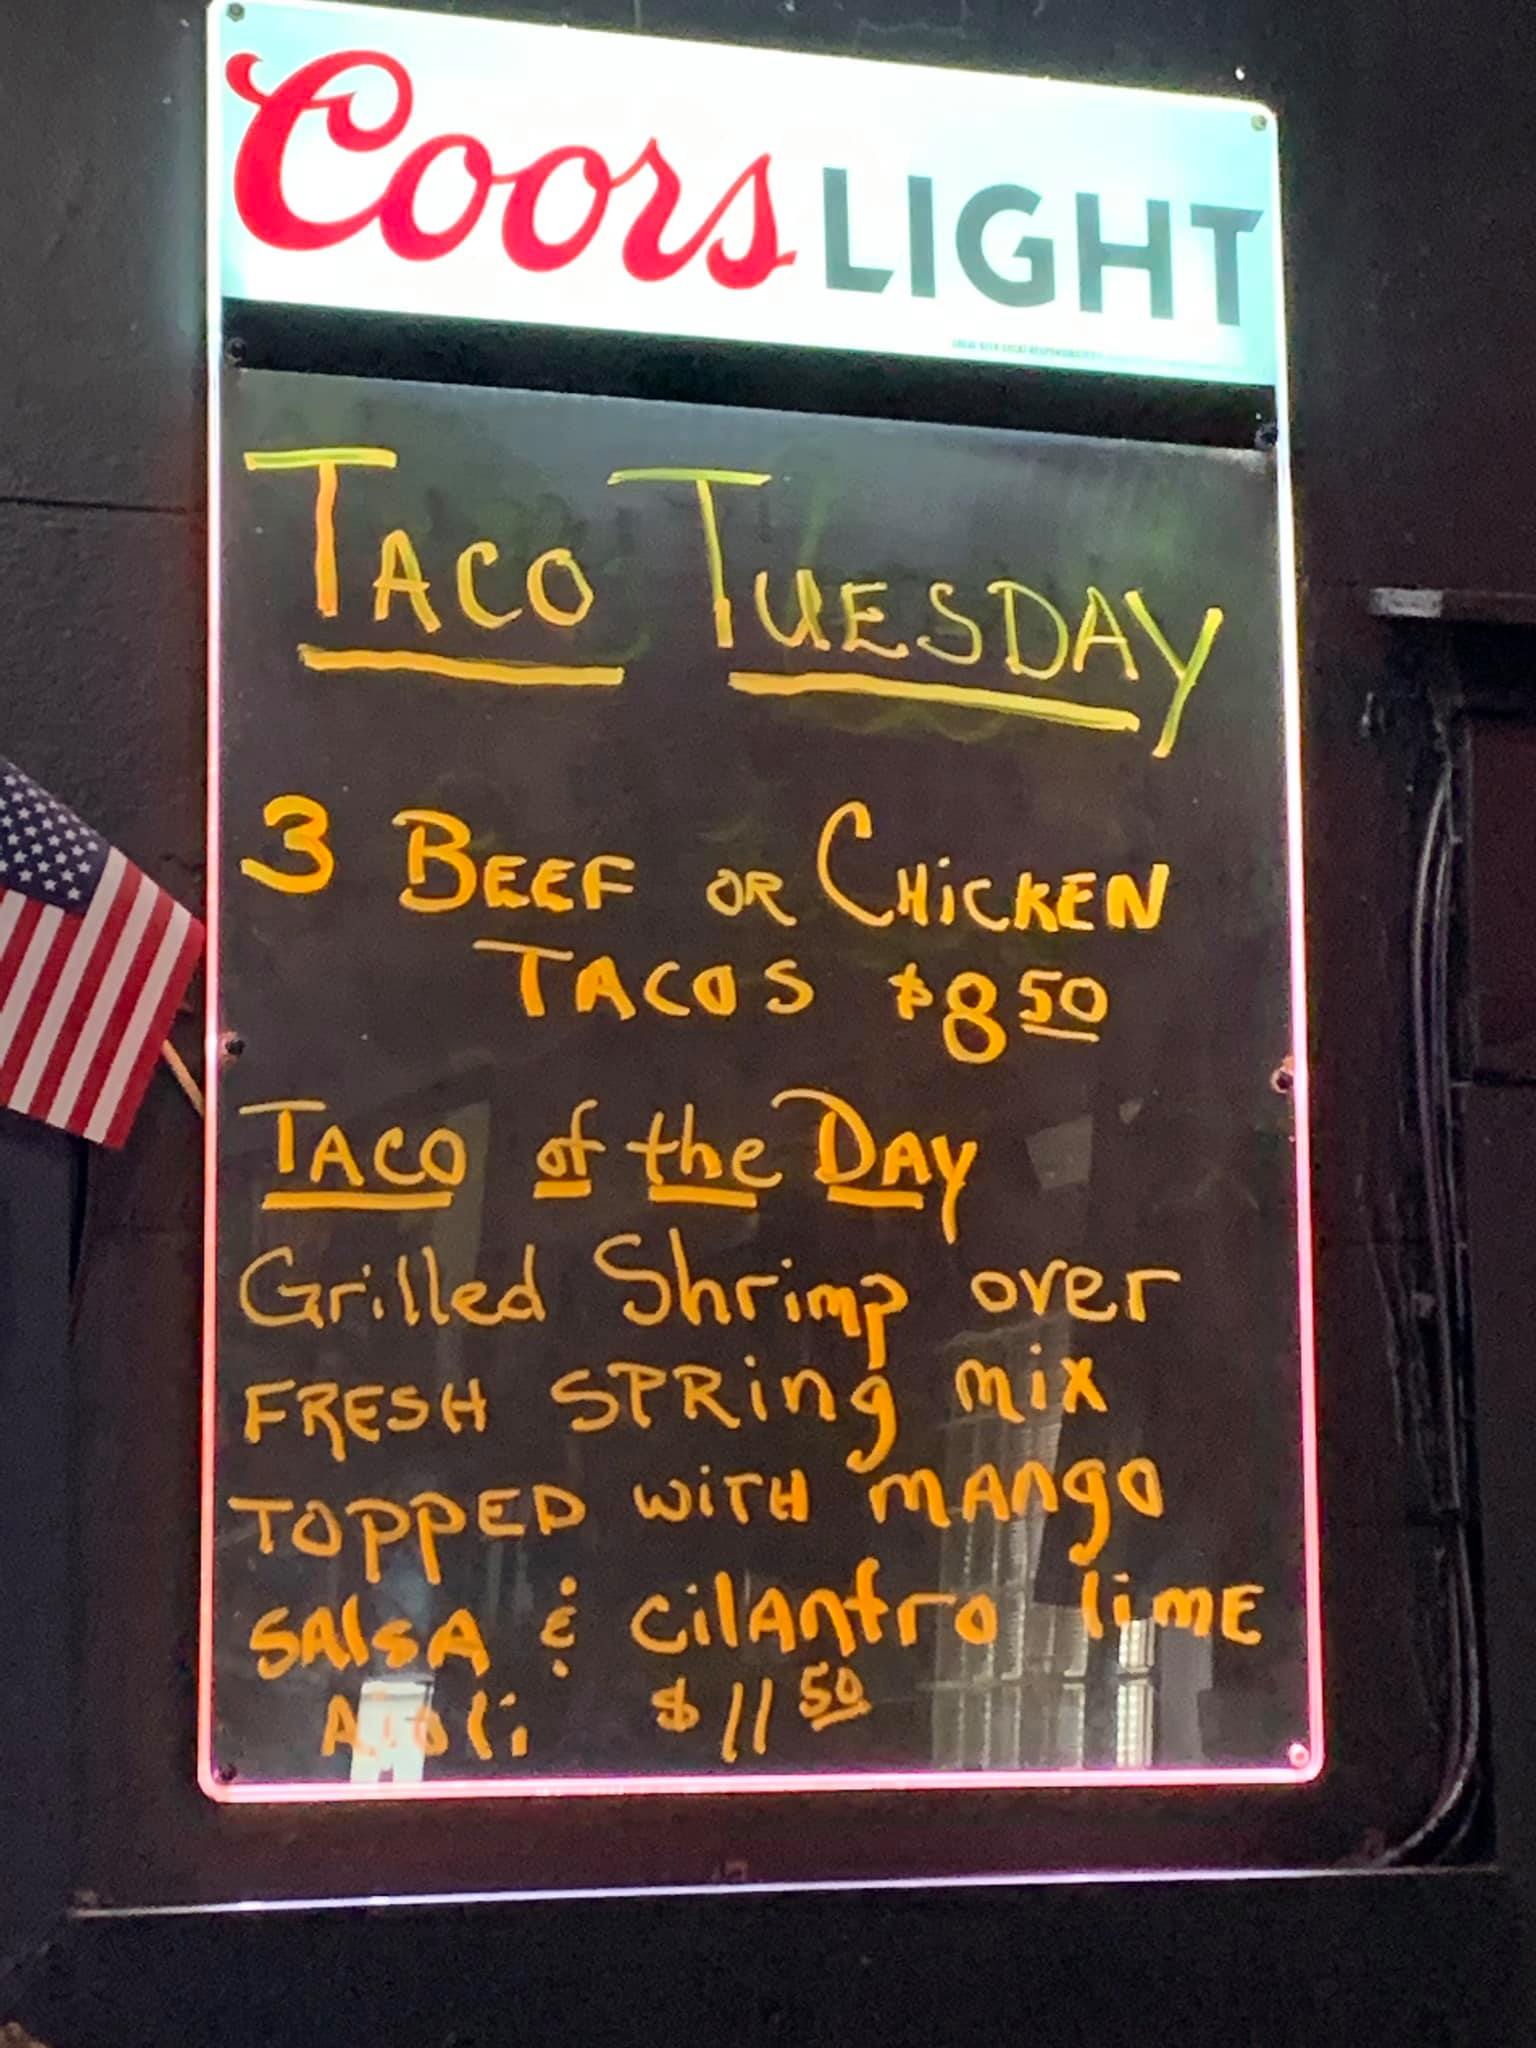 Coors LIGHT
TACO TUESDAY
3 BEEF OR CHiCKEN
TACOS $8 50
TACO of the DAY
Grilled Shrimp over
FRESH SPRing mix
TOPPED WiTH mAngo
SAlsA & CilAntro limE
Aioli $11 50